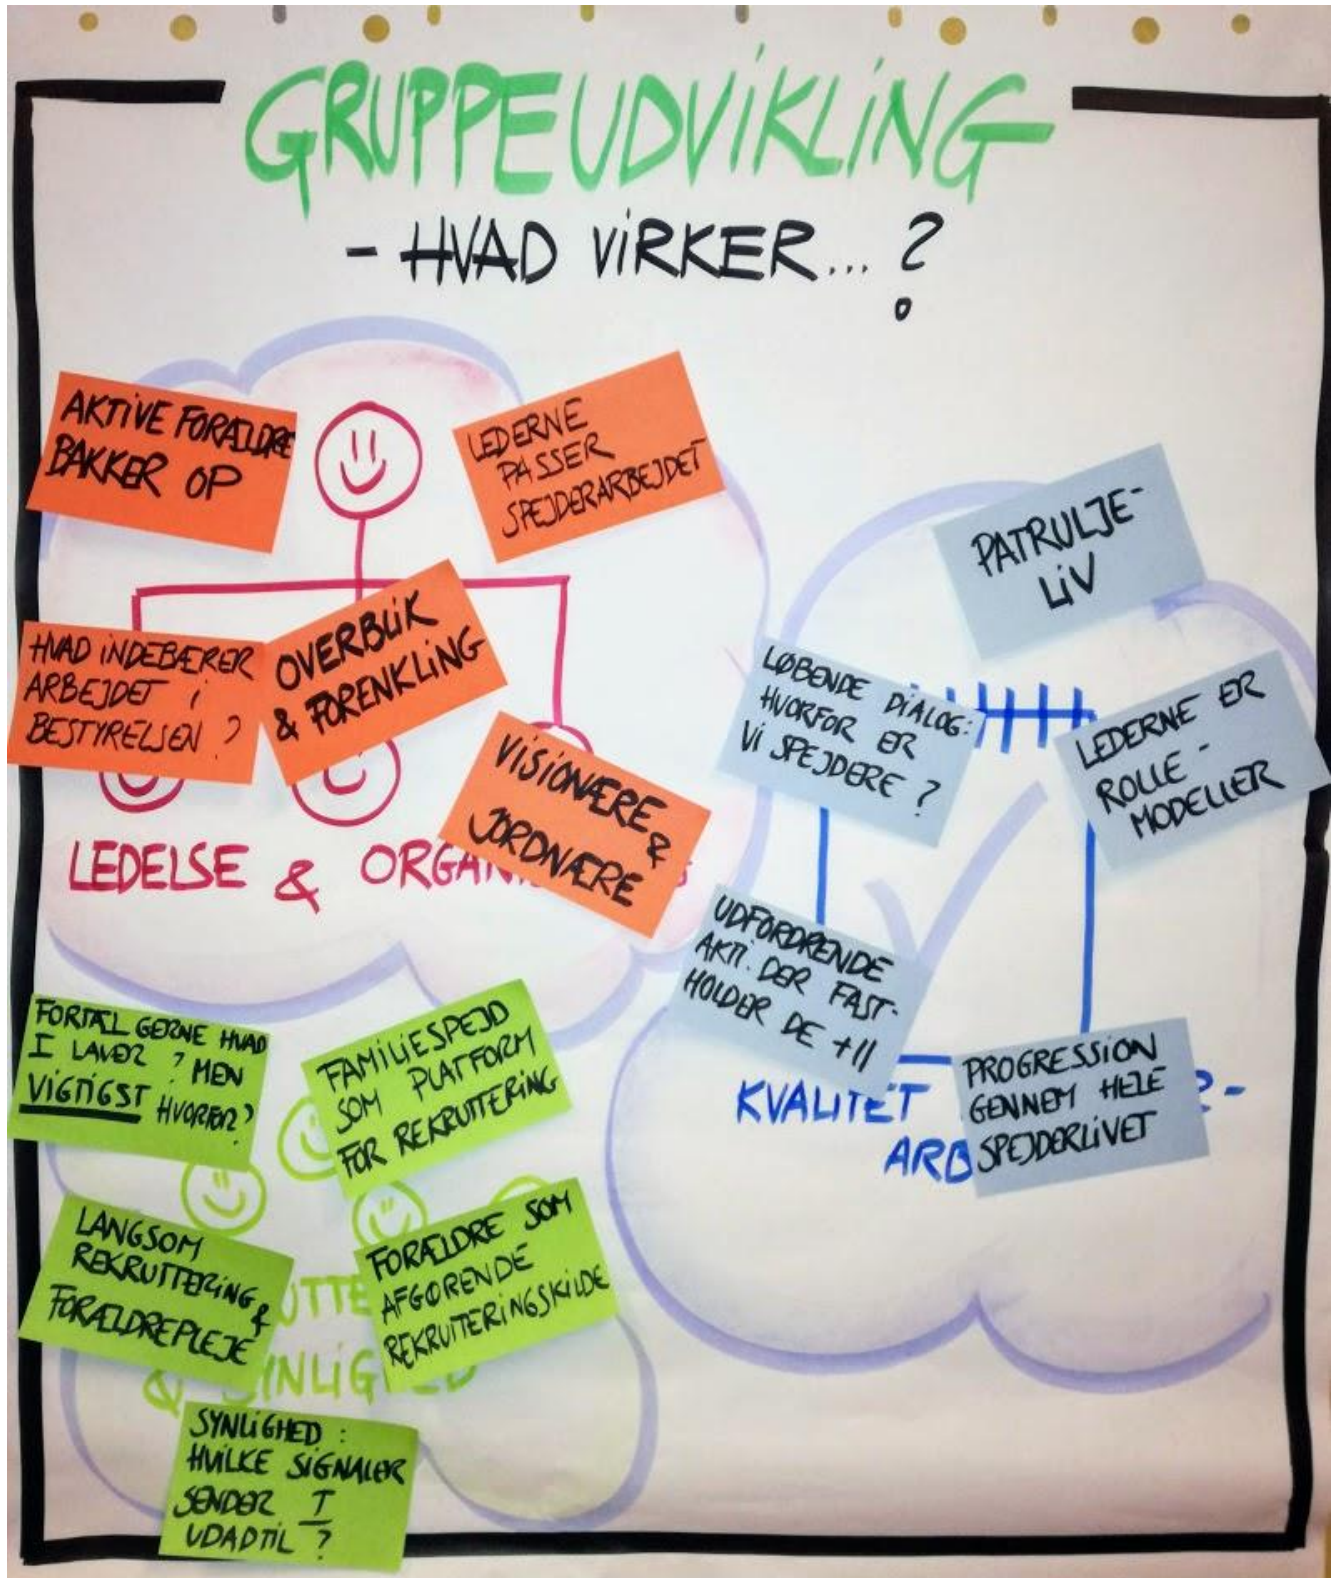 GRUPPEUDVIKLING
- HVAD VIRKER... ?
AKTIVE FORÆLDRE
BAKKER OP
LEDERNE
PASSER
SPEJDERARBEJDET
HVAD INDEBÆRER
ARBEJDET I
BESTYRELSEN ?
OVERBLIK
& FORENKLING
VISIONÆRE
&
JORDNÆRE
LEDELSE & ORGAN
PATRULJE-
LIV
LØBENDE DIALOG:
HVORFOR ER
VI SPEJDERE ?
LEDERNE ER
ROLLE-
MODELLER
UDFORDRENDE
AKTI. DER FAST-
HOLDER DE +11
PROGRESSION
GENNEM HELE
SPEJDERLIVET
KVALITET R-
ARB
FORTÆL GERNE HVAD
I LAVER ? MEN
VIGTIGST HVORFOR?
FAMILIESPEJD
SOM PLATFORM
FOR REKRUTTERING
LANGSOM
REKRUTTERING
&
FORÆLDREPLEJE
FORÆLDRE SOM
AFGØRENDE
REKRUTTERINGSKILDE
UTTE
& SYNLIGHED
SYNLIGHED :
HVILKE SIGNALER
SENDER I
UDADTIL ?